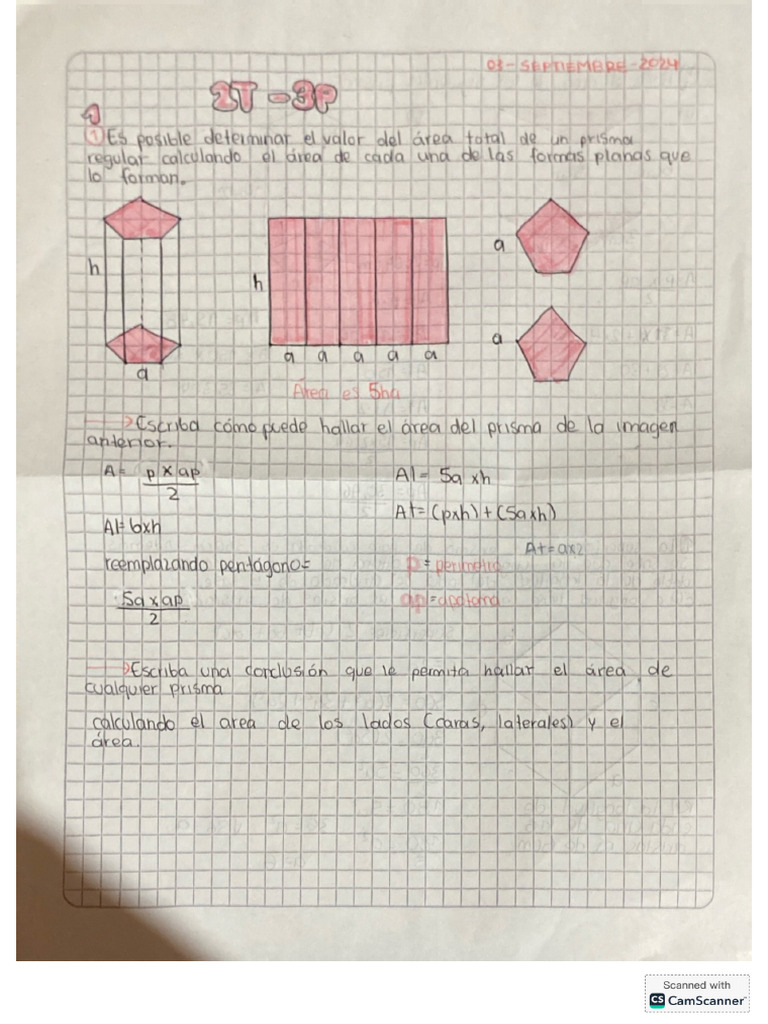 03-SEPTIEMBRE-2024
2T-3P
1
① Es posible determinar el valor del área total de un prisma
regular calculando el área de cada una de las formas planas que
lo forman.
h
a
h
a a a a a
a
a
Área es 5ha
→ Escriba cómo puede hallar el área del prisma de la imagen
anterior.
A= p x ap
2
Al = 5a xh
At = (pxh) + (5axh)
Al=bxh
At=ax2
reemplazando pentágono=
p = perimetro
5a x ap
2
ap = apotema
→ Escriba una conclusión que le permita hallar el área de
cualquier prisma
calculando el area de los lados (caras, laterales) y el
área.
Scanned with
CS CamScanner